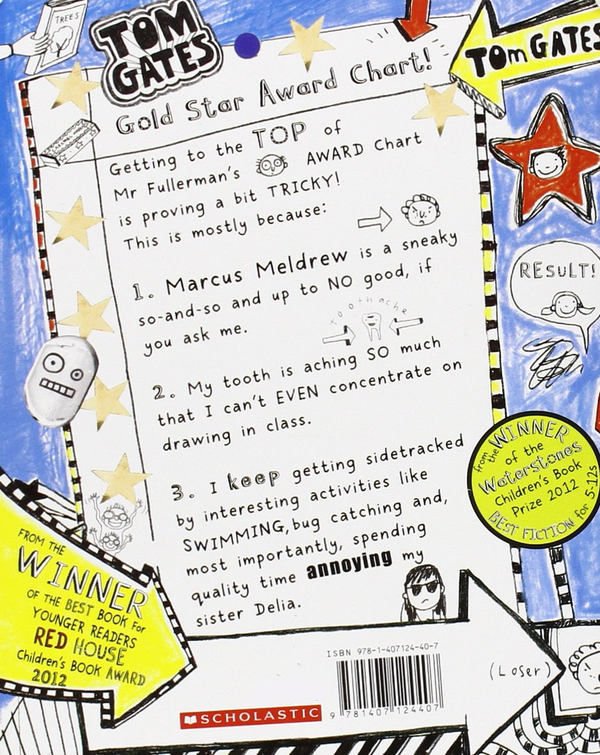 TREES
TOM
GATES
TOM GATES
Gold Star Award Chart!
Getting to the TOP of
Mr Fullerman's AWARD Chart
is proving a bit TRICKY!
This is mostly because:
1. Marcus Meldrew is a sneaky
so-and-so and up to NO good, if
you ask me.
Toothache
2. My tooth is aching SO much
that I can't EVEN concentrate on
drawing in class.
3. I keep getting sidetracked
by interesting activities like
SWIMMING, bug catching and,
most importantly, spending
quality time annoying my
sister Delia.
RESULT!
from the WINNER
of the
Waterstones
Children's Book
Prize 2012
BEST FICTION for 5-12s
FROM THE
WINNER
OF THE BEST BOOK FOR
YOUNGER READERS
RED HOUSE
Children's BOOK AWARD
2012
ISBN 978-1-407124-40-7
9 781407 124407
(Loser)
SCHOLASTIC